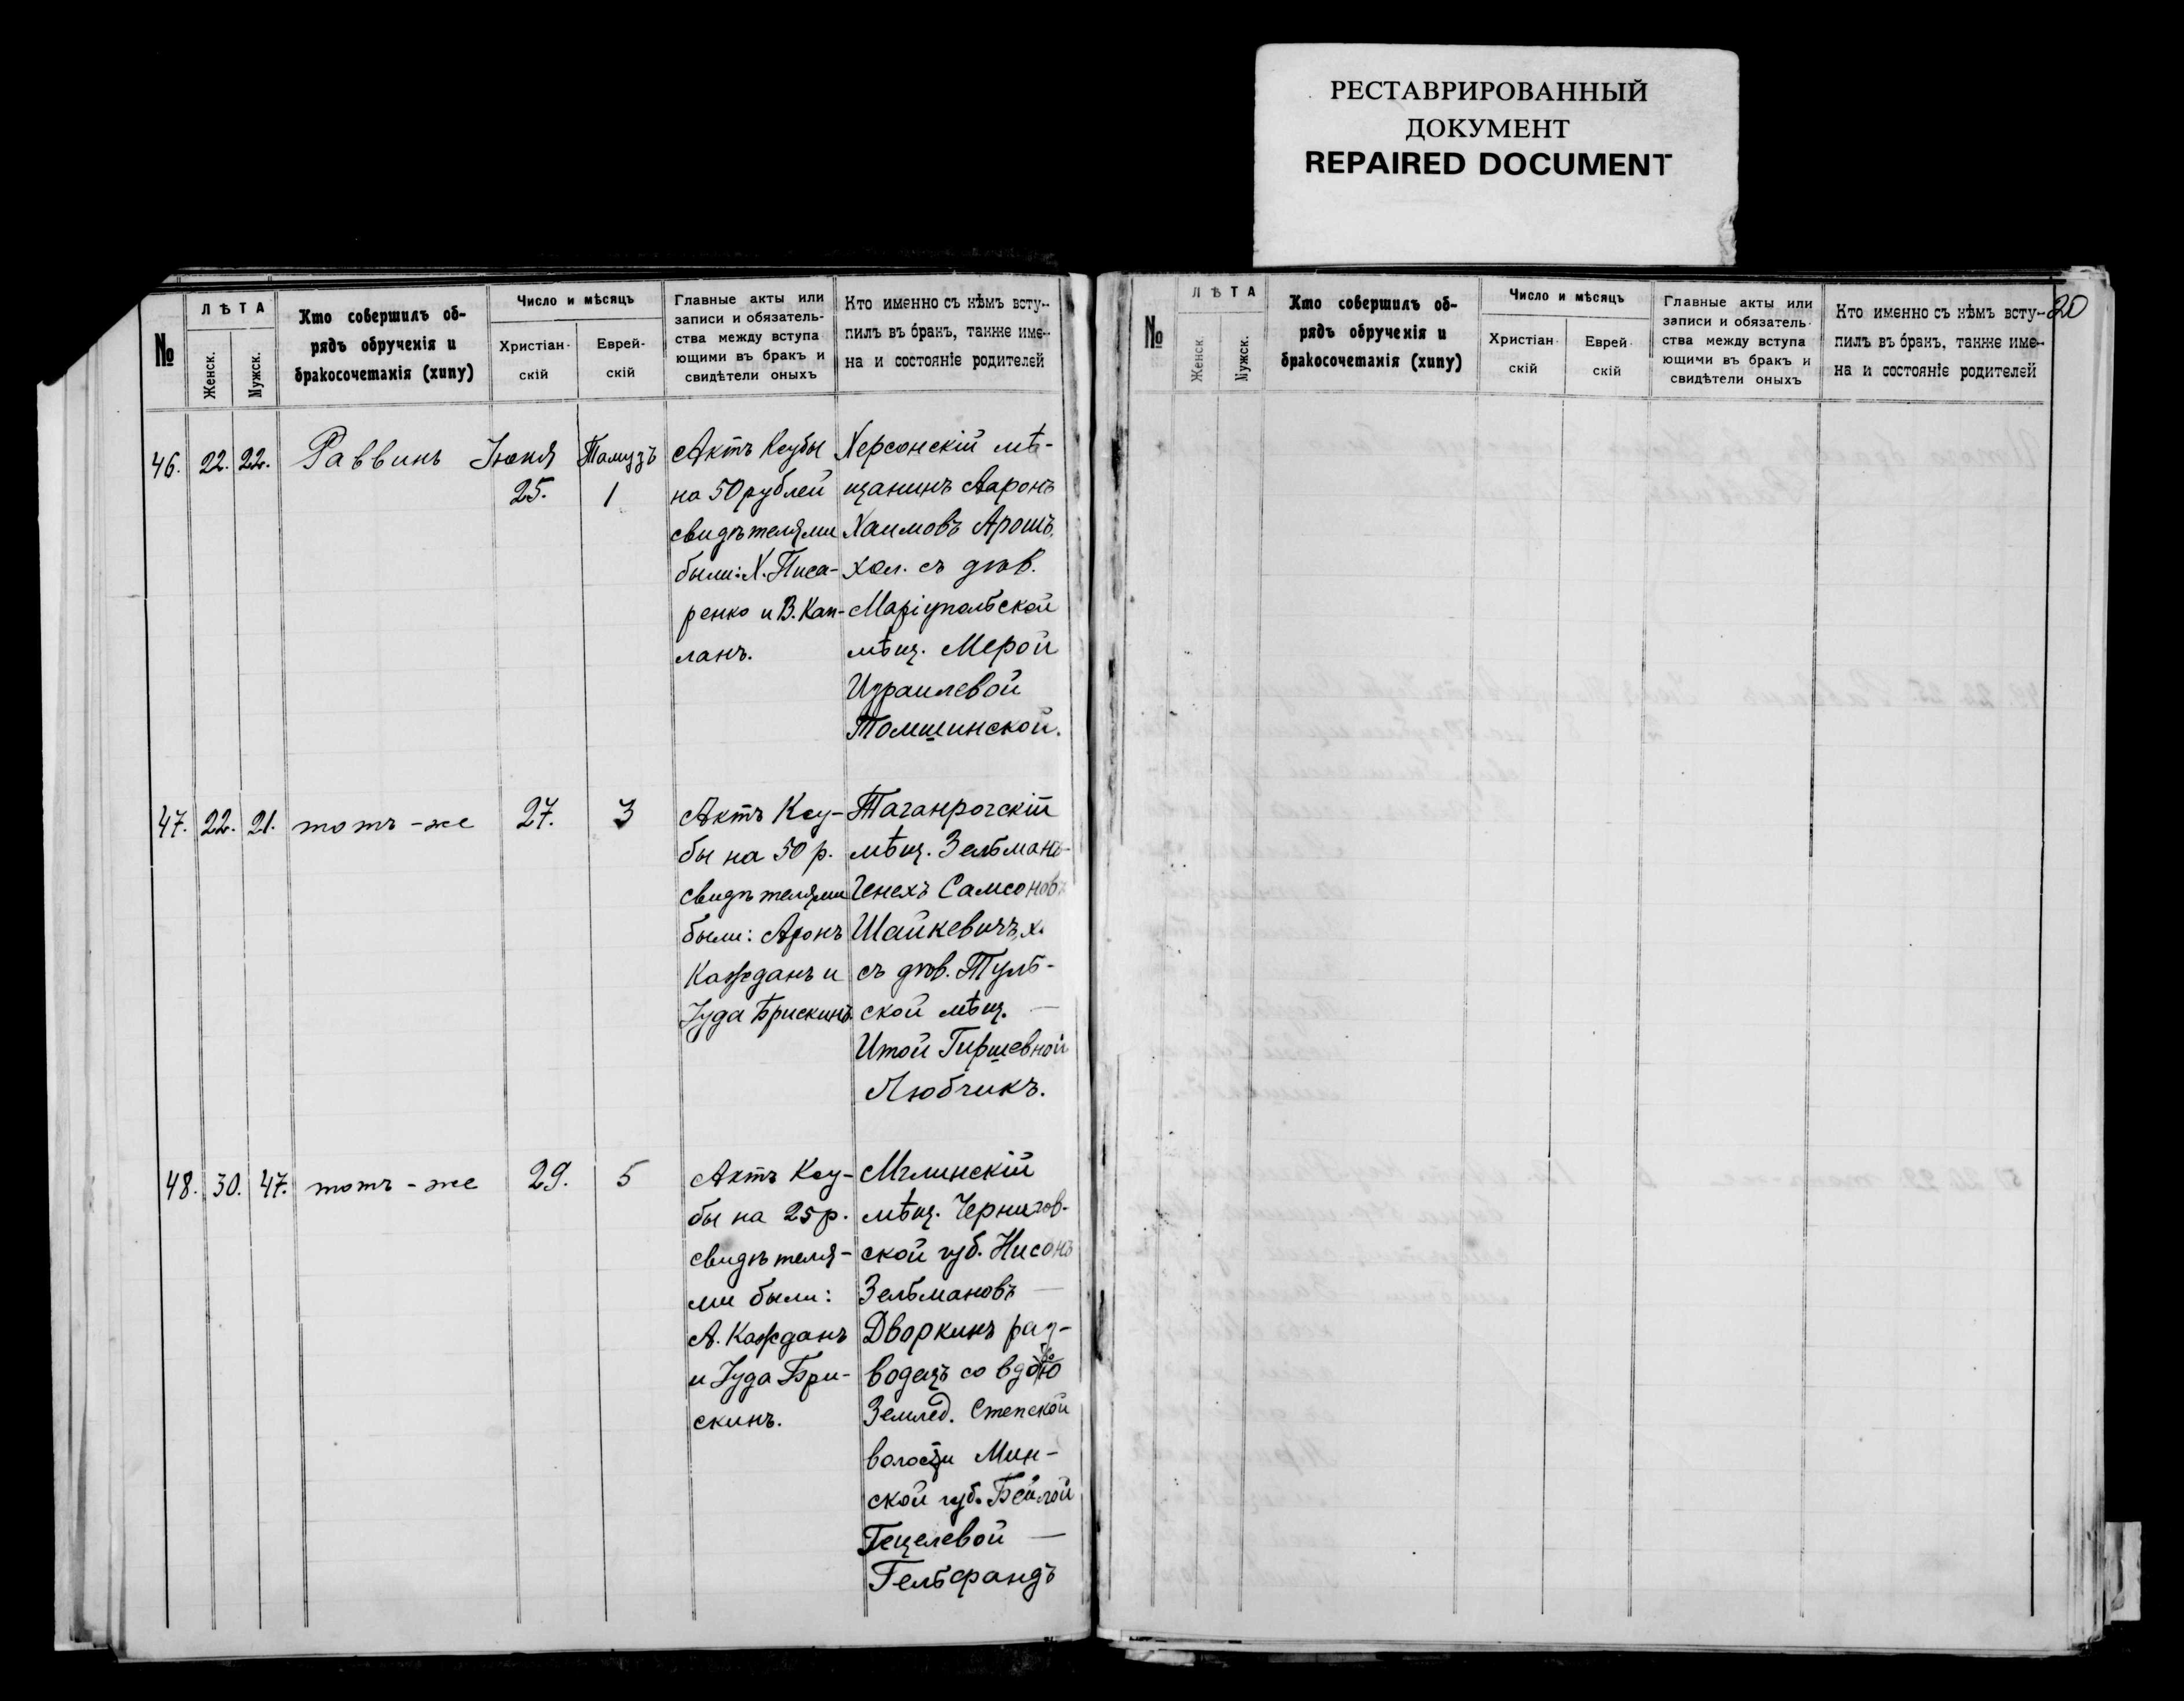 РЕСТАВРИРОВАННЫЙ
ДОКУМЕНТ
REPAIRED DOCUMENT
№
ЛѢТА
Женск.
Мужск.
Кто совершилъ об-
рядъ обрученія и
бракосочетанія (хипу)
Число и мѣсяцъ
Христіан-
скій
Еврей-
скій
Главные акты или
записи и обязатель-
ства между вступа
ющими въ бракъ и
свидѣтели оныхъ
Кто именно съ кѣмъ всту-
пилъ въ бракъ, также име-
на и состояніе родителей
46. 22. 22. Раввинъ Іюня 25. Тамузъ 1
Актъ Ксубы
на 50 рублей
свидѣтелями
были: Х. Писа-
ренко и В. Кап-
ланъ.
Херсонскій мѣ-
щанинъ Ааронъ
Хаимовъ Арошъ,
хол. съ дѣв.
Маріупольской
мѣщ. Мерой
Израилевой
Томшинской.
47. 22. 21. тотъ-же 27. 3
Актъ Ксу-
бы на 50 р.
свидѣтелями
были: Аронъ
Кажданъ и
Іуда Брискинъ.
Таганрогскій
мѣщ. Зельманъ-
Генехъ Самсоновъ
Шайкевичъ, х.
съ дѣв. Туль-
ской мѣщ. —
Итой Гиршевной
Любчикъ.
48. 30. 47. тотъ-же 29. 5
Актъ Ксу-
бы на 25 р.
свидѣтеля-
ми были:
А. Кажданъ
и Іуда Бри-
скинъ.
Мглинскій
мѣщ. Чернигов-
ской губ. Нисонъ
Зельмановъ —
Дворкинъ раз-
водецъ со
Землед. Степской
волости Мин-
ской губ. Бейлой
Гецелевой —
Гельфандъ
20
№
ЛѢТА
Женск.
Мужск.
Кто совершилъ об-
рядъ обрученія и
бракосочетанія (хипу)
Число и мѣсяцъ
Христіан-
скій
Еврей-
скій
Главные акты или
записи и обязатель-
ства между вступа
ющими въ бракъ и
свидѣтели оныхъ
Кто именно съ кѣмъ всту-
пилъ въ бракъ, также име-
на и состояніе родителей